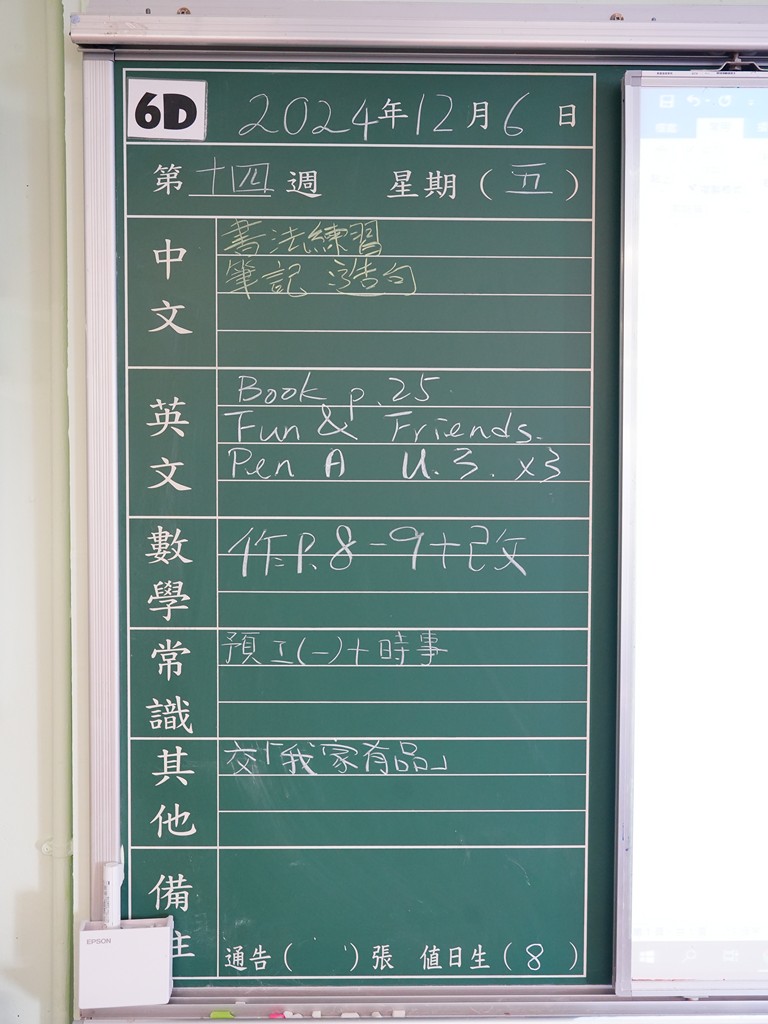 6D 2024年12月6日
第十四週 星期(五)
中文
書法練習
筆記 造句
英文
Book p.25.
Fun & Friends.
Pen A U.3. x3
數學
作P.8-9+改
常識
預工(一)+時事
其他
交「我家有品」
備註
通告( )張 值日生(8)
EPSON